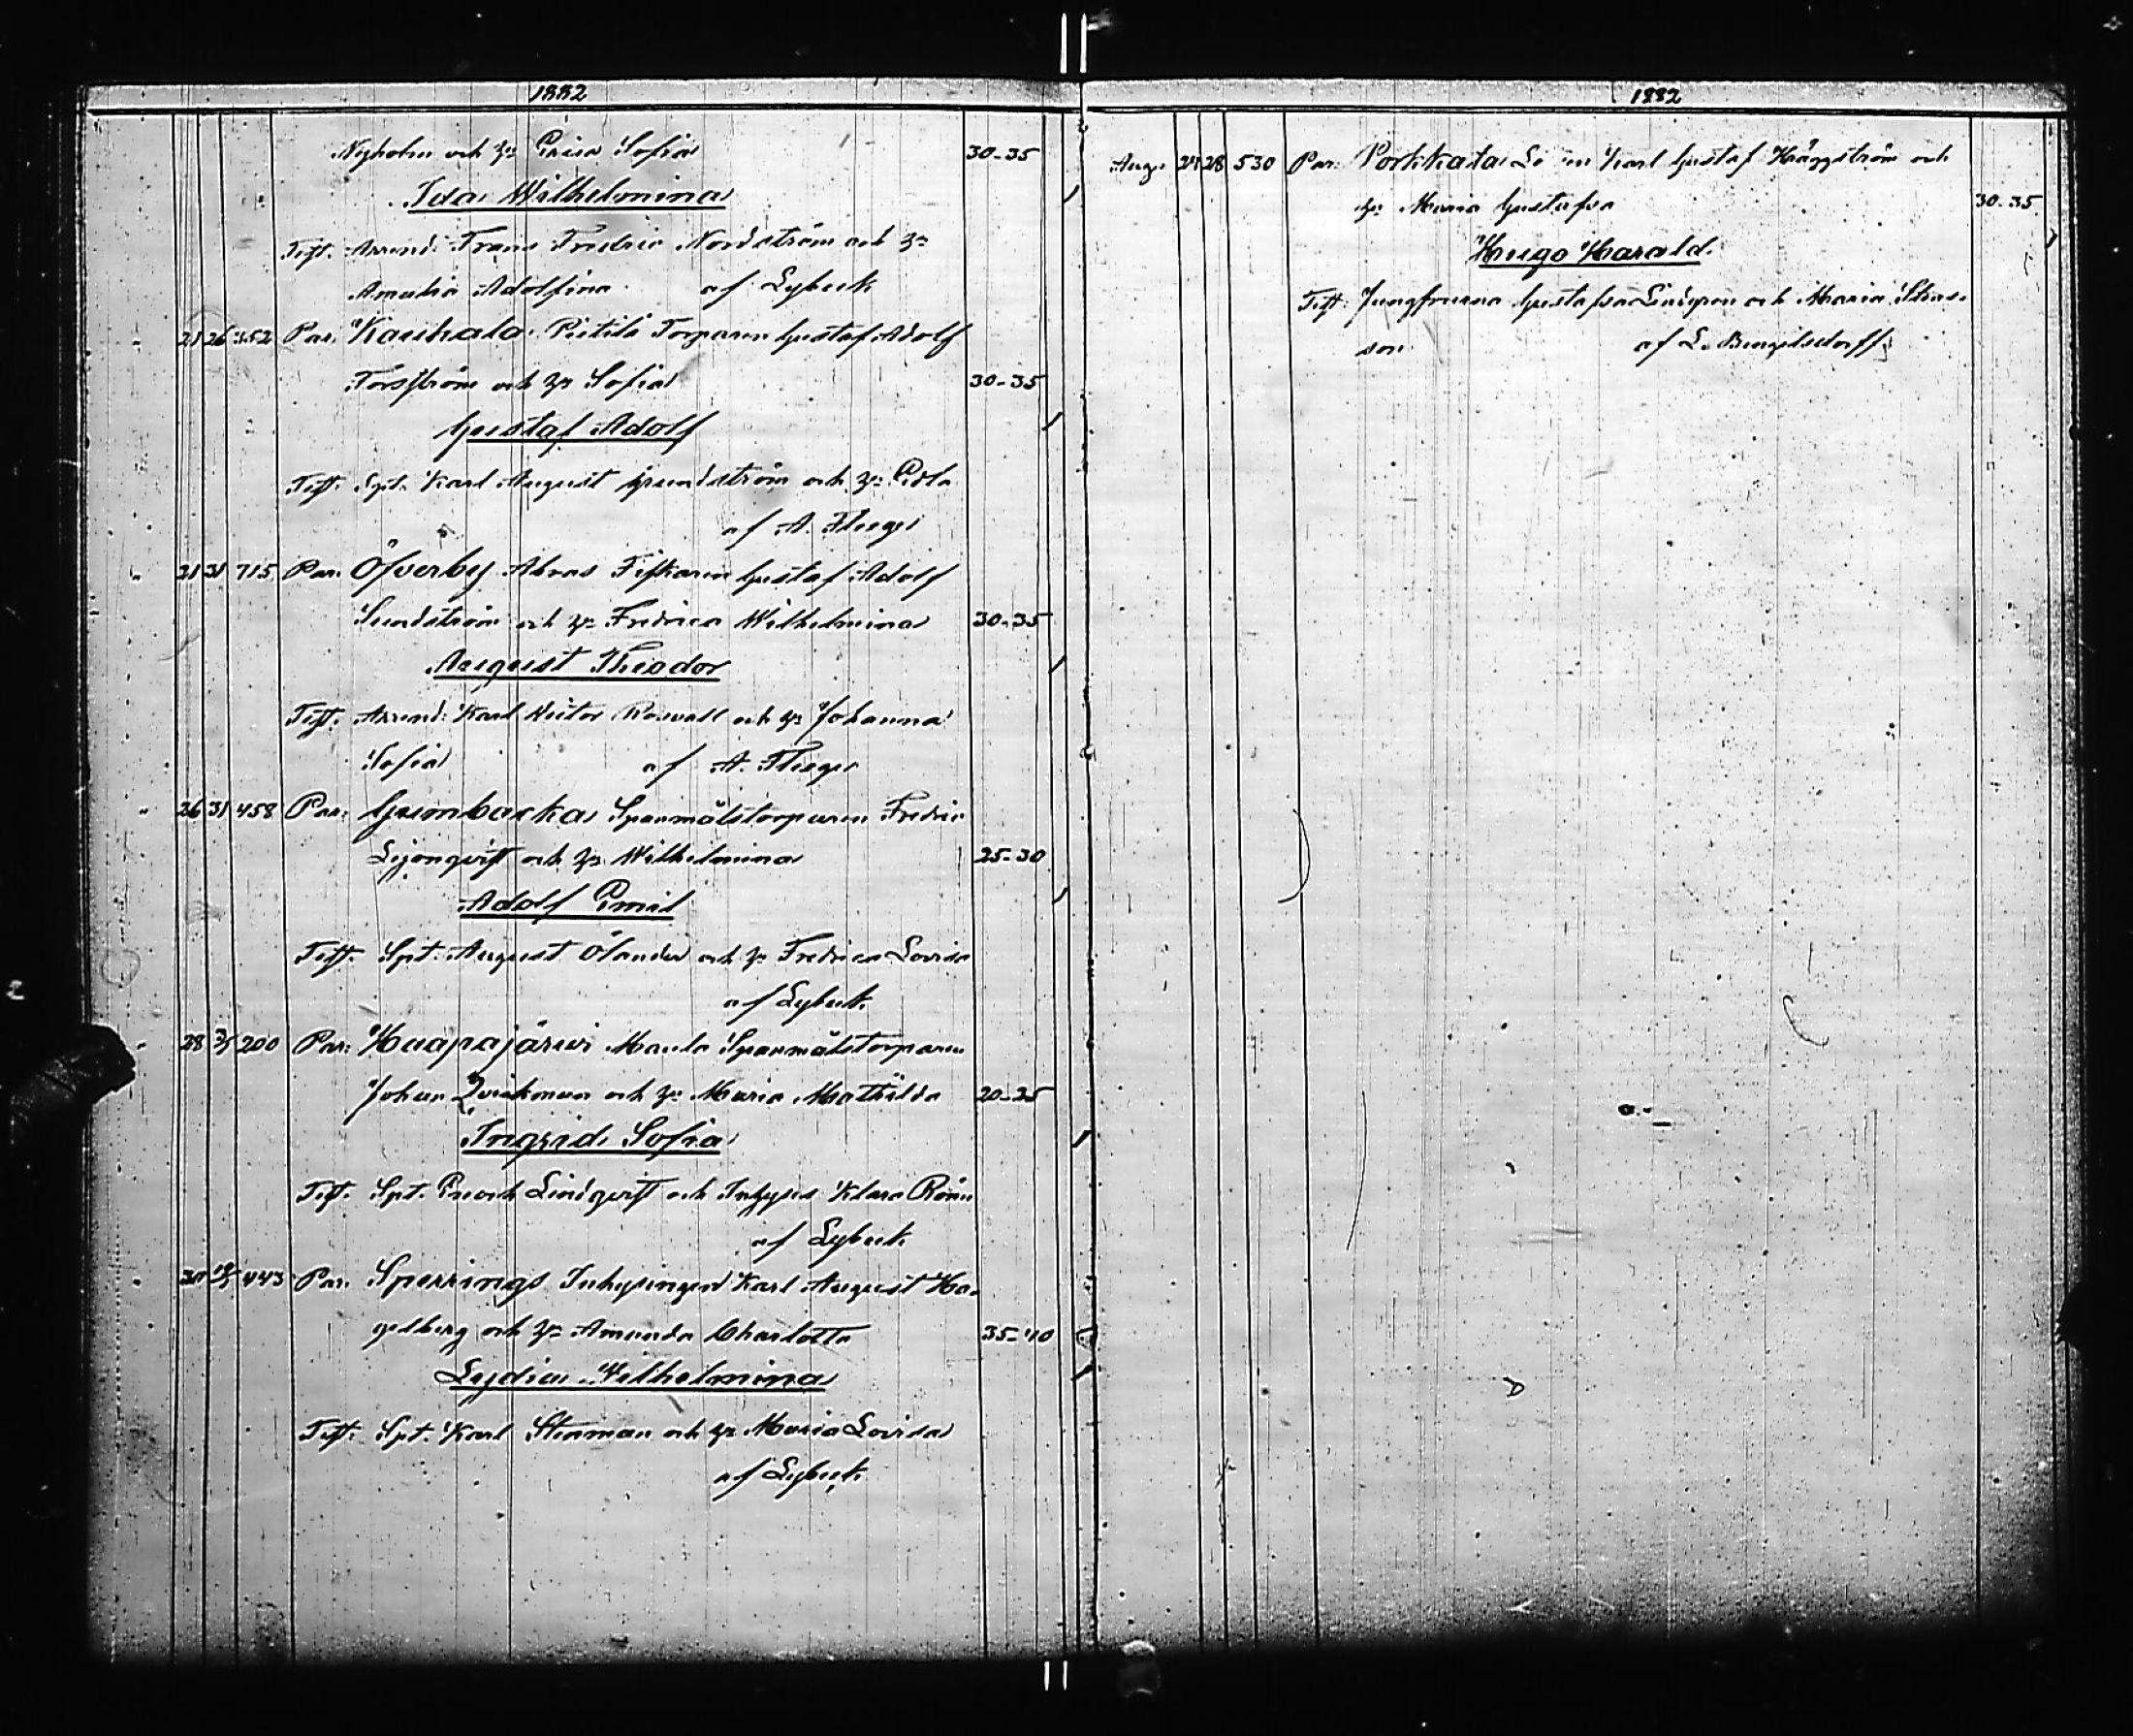 1882
Nyholm och hu Erica Sofia 30-35
Ida Wilhelmina
Test. Arrend. Frans Fredric Nordström och hu
Amalia Adolfina af Lybeck
21 26 352 Par. Kauhala Pietilä Torparen Gustaf Adolf
Forsström och hu Sofia 30-35
Gustaf Adolf
Test. Spt. Karl August Grundström och hu Edla
af A.
21 31 715 Par. Öfverby Alvas Fiskaren Gustaf Adolf
Sundström och hu Fredrica Wilhelmina 30-35
August Theodor
Test. Arrend. Karl Victor Rosvall och hu Johanna
Sofia af A.
26 31 458 Par. Grönbacka Spanmålstorparen Fredric
Lejonqvist och hu Wilhelmina 25-30
Adolf Emil
Test. Spt. August Ölander och hu Fredrica Lovisa
af Lybeck.
28 200 Par. Haapajärwi Maula Spanmålstorparen
Johan Qvickman och hu Maria Mathilda 20-25
Ingrid Sofia
Test. Spt. Enoch Lindqvist och Inhyses Klara Rönn
af Lybeck.
443 Par. Sperrings Inhysingen Karl August Ha-
gelberg och hu Amanda Charlotta 35-40
Lydia Wilhelmina
Test. Spt. Karl Stenman och hu Maria Lovisa
af Lybeck.
1882
Aug. 24 28 530 Par. Porkkala Karl Gustaf Häggström och
hu Maria Gustafva 30-35
Hugo Harald.
Test. Jungfrurna Gustafva Lindgren och Maria Stens-
son af L. Bengelsdorff